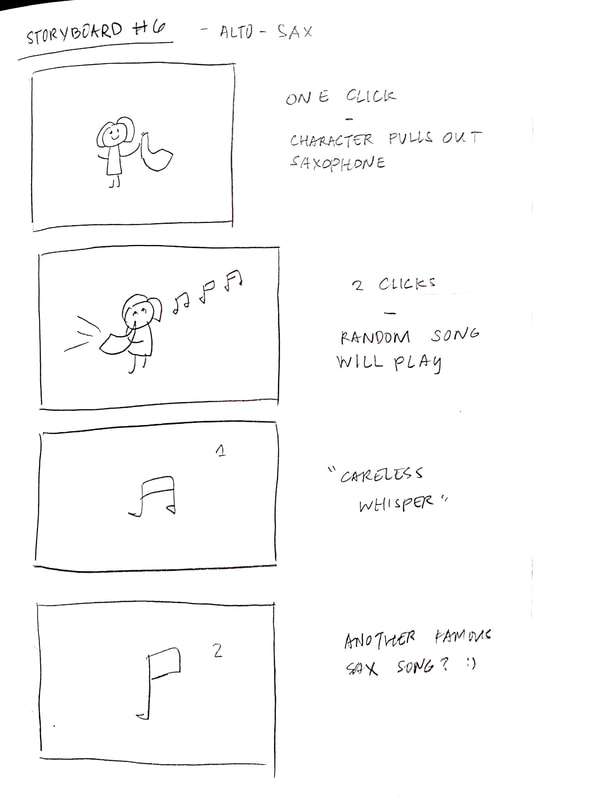 STORYBOARD #6 - ALTO - SAX
ONE CLICK
-
CHARACTER PULLS OUT
SAXOPHONE
2 CLICKS
-
RANDOM SONG
WILL PLAY
1
"CARELESS
WHISPER"
2
ANOTHER FAMOUS
SAX SONG? :)